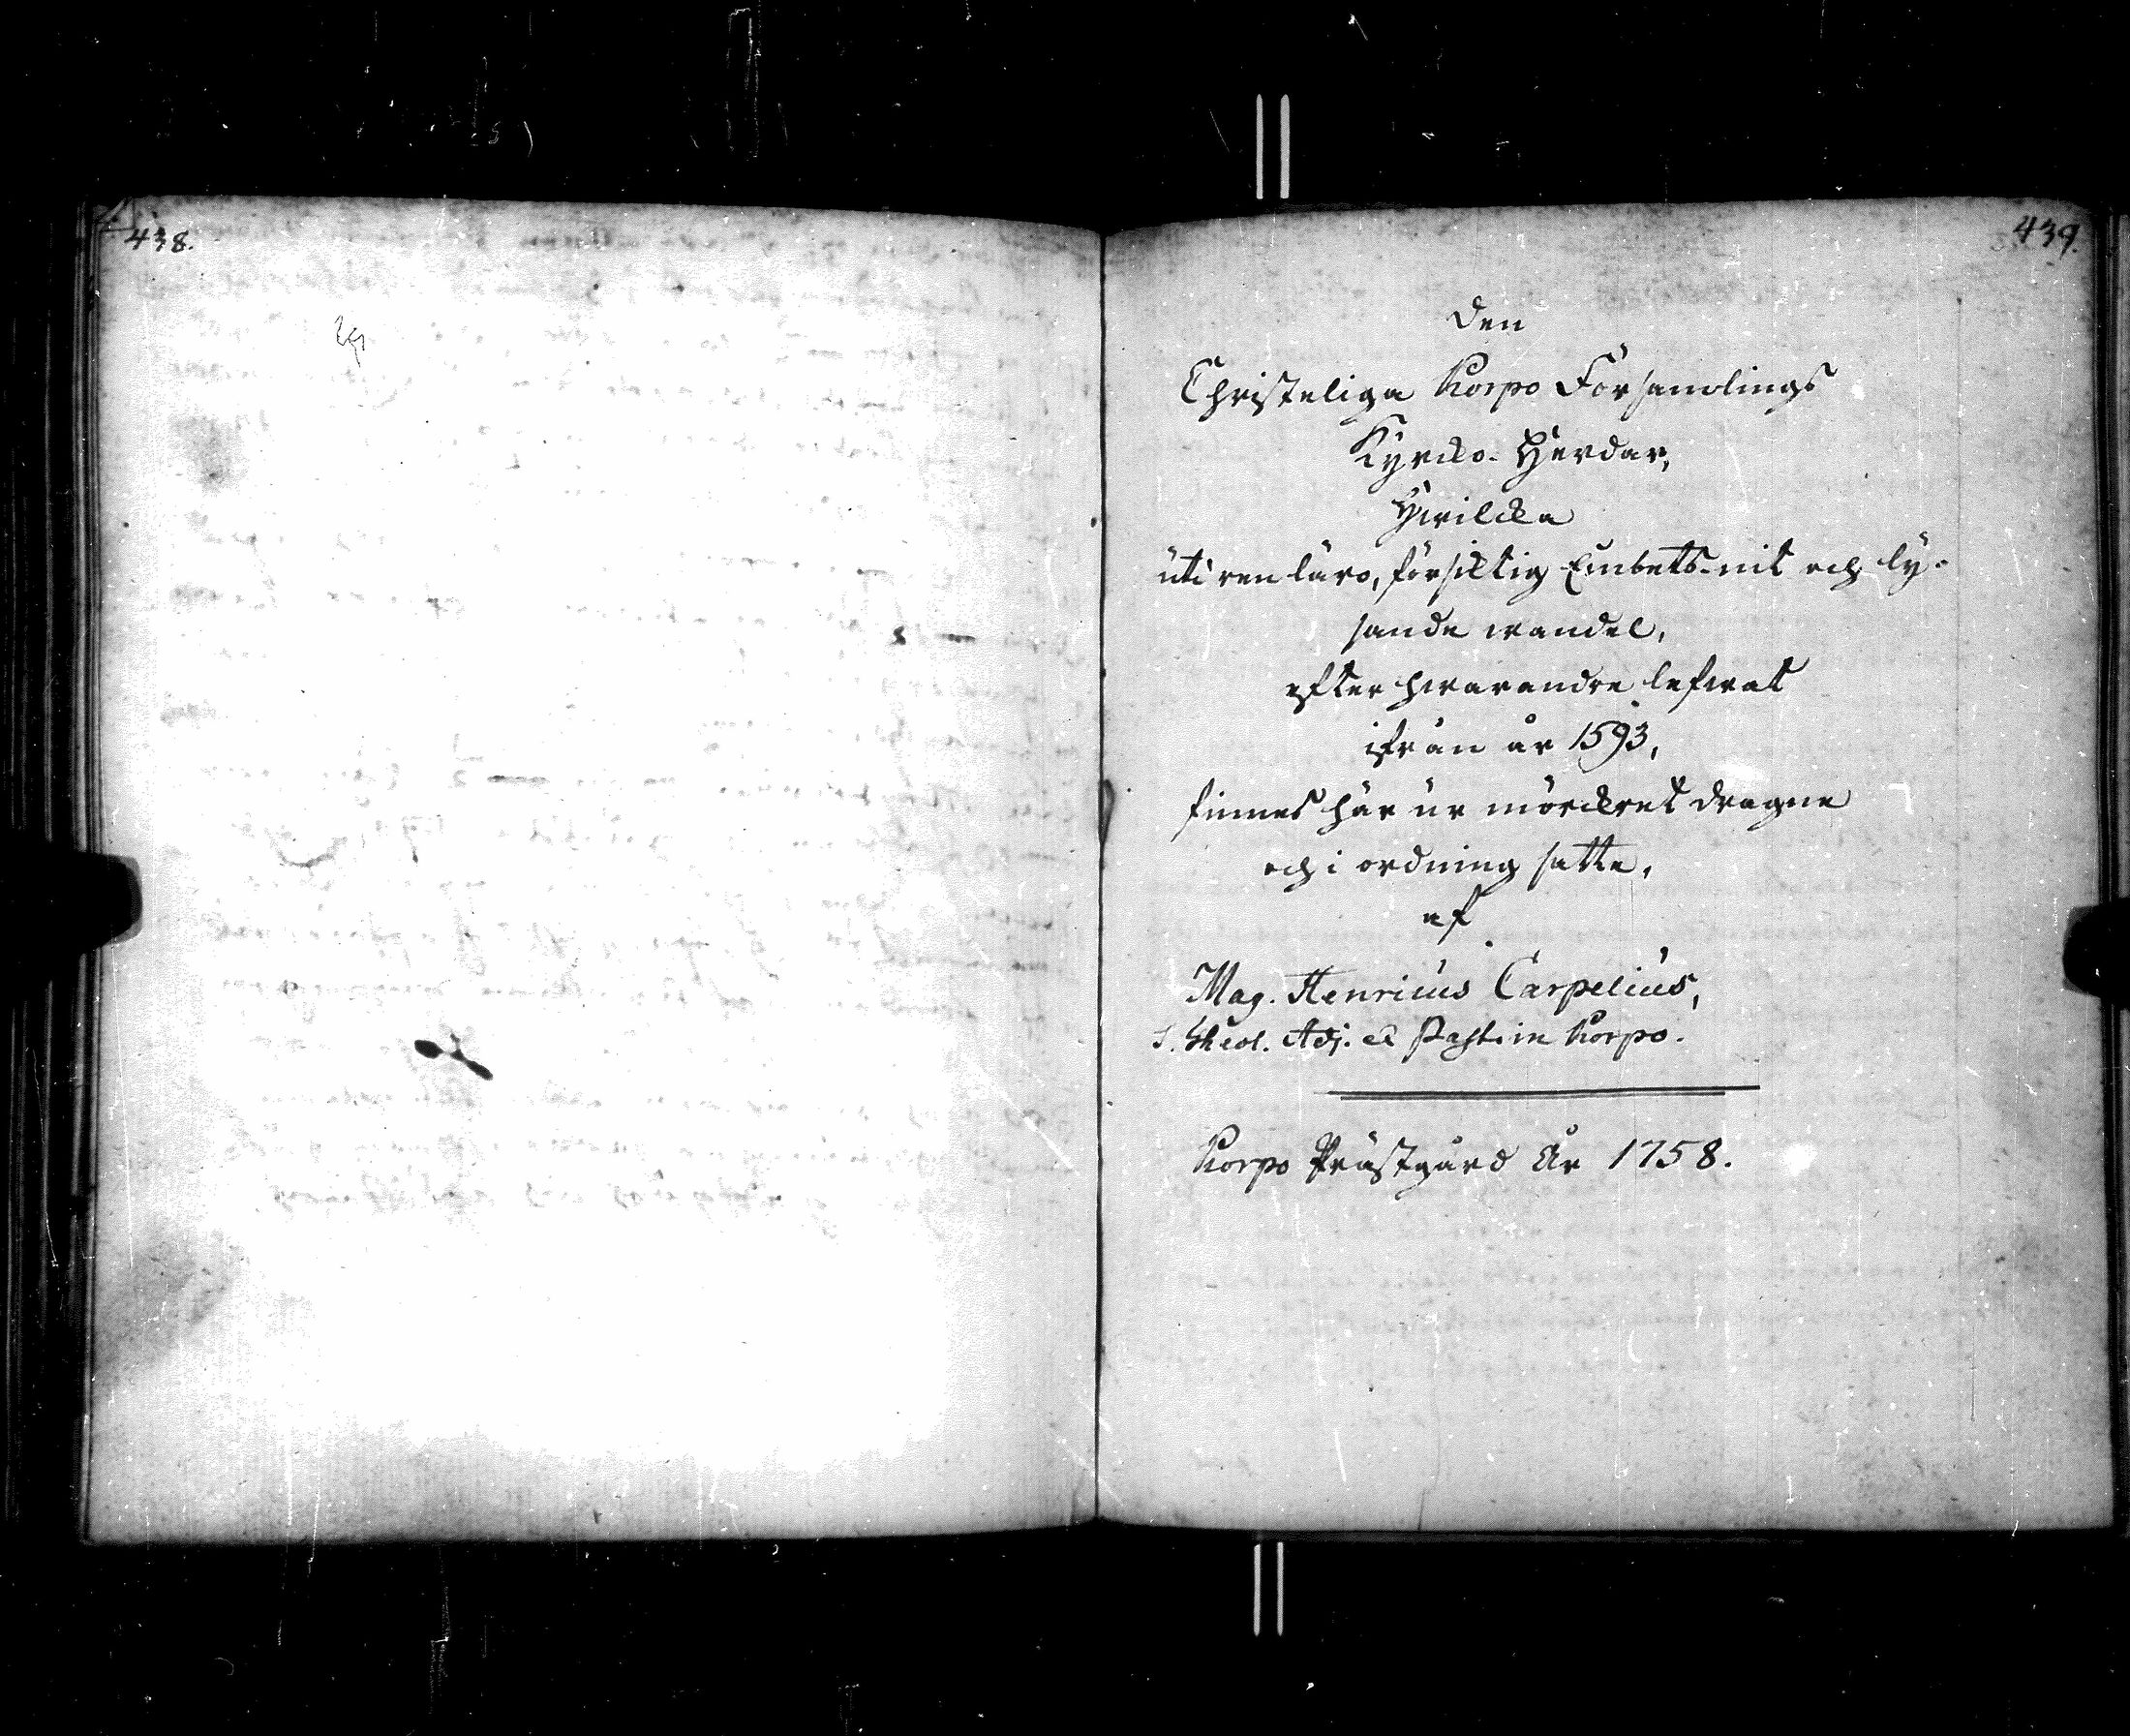 438.
439.
Den
Christeliga Korpo Församlings
Kyrcko-Herdar,
Hwilcka
uti ren läro, försicktig Embets-nit och ly-
sande wandel,
efter hwarandre lefwat
ifrån år 1593,
finnes här ur mörckret dragne
och i ordning satte,
af
Mag. Henricus Carpelius,
S. Theol. Adj. et Past. in Korpo.
Korpo Prästgård År 1758.